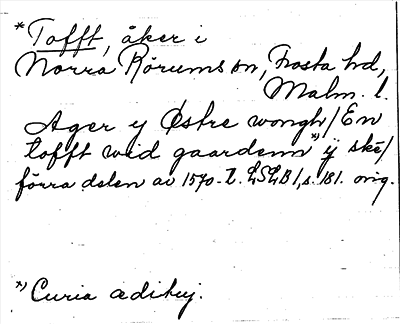 * Tofft, åker i
Norra Rörums sn, Frosta hd,
Malm. l.
Ager y Østre wongh / En
tofft wid gaardenn *) ÿ skē /
förra delen av 1570-t. LSLB 1, s. 181. orig.
*) Curia ædituj.